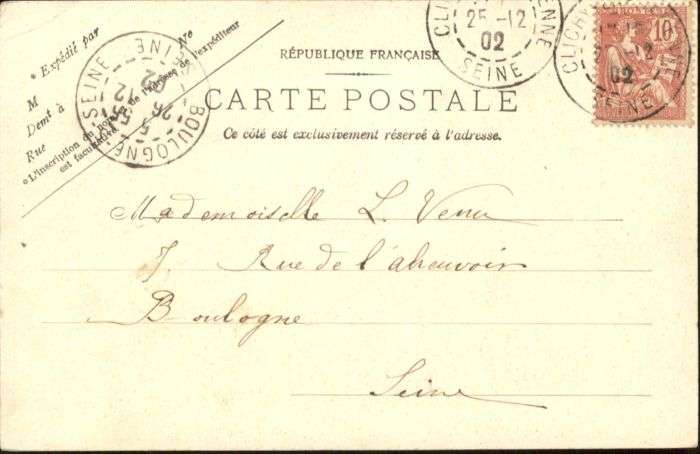 * Expédié par
M
Demt à
Rue
No
*L'inscription du nom et de l'adresse de l'expéditeur
est facultative.
BOULOGNE-SEINE SEINE
5
26
12
02
CLICHY
25 -12
02
SEINE
CLICHY
12
02
SEINE
10
RÉPUBLIQUE FRANÇAISE
CARTE POSTALE
Ce côté est exclusivement réservé à l'adresse.
Mademoiselle L.
7, Rue de l'abreuvoir
Boulogne
Seine